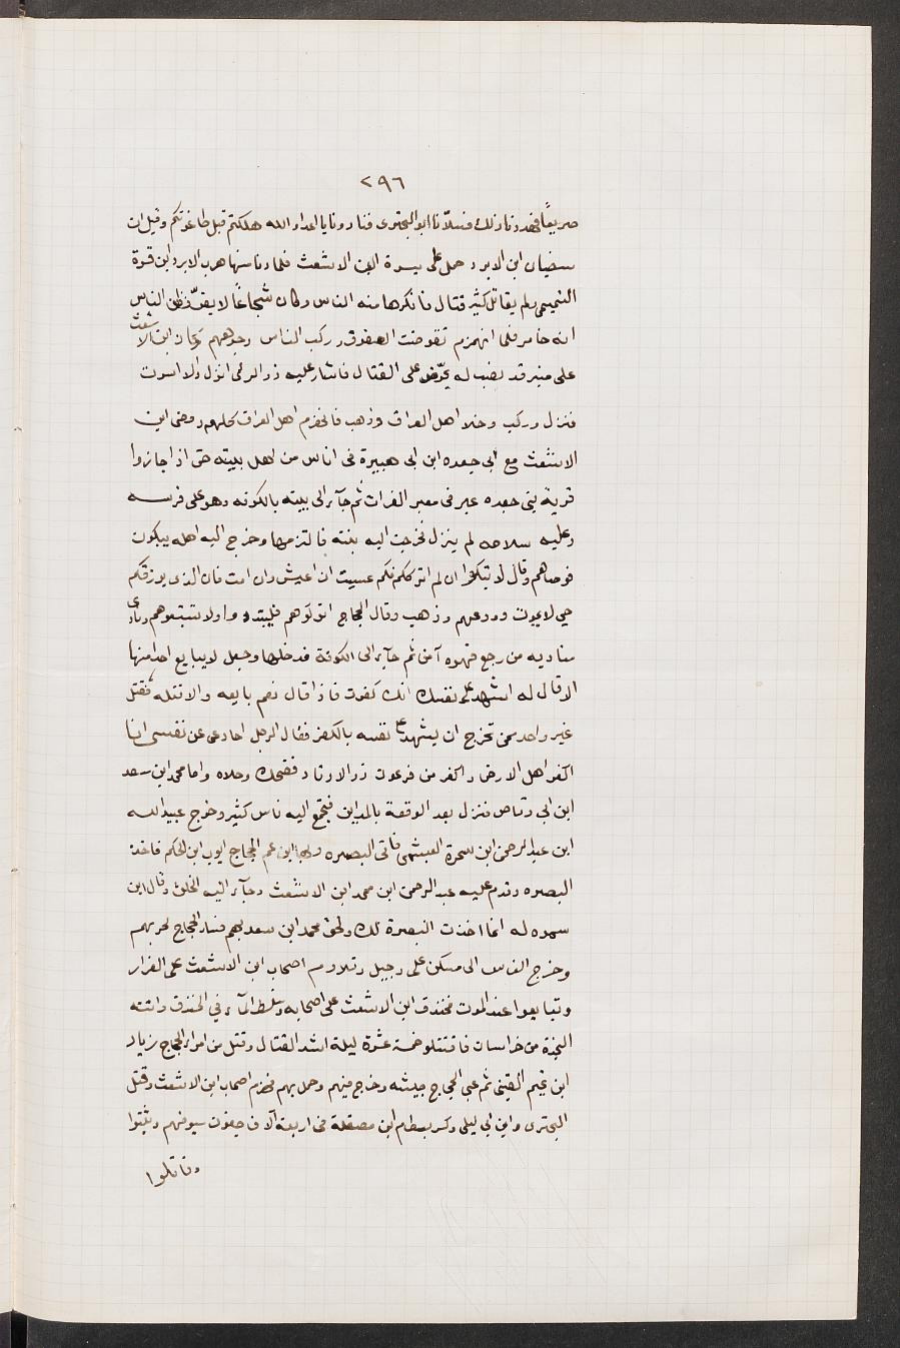 ٢٩٦
صريعًا فهدنا ذلك فسلّانا ابو البختري فنادونا يا اعداء الله هلكتم قبل طاغوتكم وقيل ان
سفيان ابن الابرد حمل على ميسرة ابن الاشعث فلما دنا منها هرب الابرد ابن قرة
التميمي ولم يقاتل كثير قتال فانكرها منه الناس وكان شجاعًا لا يفرّ وظن الناس
انه خامر فلما انهزم تقوضت الصفوف وركب الناس وجوههم وكان ابن الاشعث
على منبر قد نصب له يحرّض على القتال فاشار عليه ذو الرئي انزل والا اسرت
فنزل وركب وخلا اهل العراق وذهب فانهزم اهل العراق كلهم ومضى ابن
الاشعث مع ابي جعده ابن ابي هبيرة في اناس من اهل بيته حتى اذا جازوا
قرية بني جعده عبر في معبر الفرات ثم جآء الى بيته بالكوفه وهو على فرسه
وعليه سلاحه لم ينزل فخرجت اليه بنته فالتزمها وخرج اليه اهله يبكون
فوصاهم وقال لا تبكوا ان لم اترككم فكم عسيت ان اعيش وان امت فان الذي يرزقكم
حي لا يموت وودعهم وذهب وقال الحجاج اتركوهم فليتبددوا ولا تتبعوهم ونادى
مناديه من رجع فهوه آمن ثم جآء الى الكوفة فدخلها وجعل لا يبايع احدا منها
الا قال له اشهد على نفسك انك كفرت فاذا قال نعم بايعه والا قتله فقتل
غير واحد ممن تحرج ان يشهد على نفسه بالكفر فقال الرجل اخادعى عن نفسي انا
اكفر اهل الارض واكفر من فرعون ذو الاوتاد فضحك وخلاه واما محمد ابن سعد
ابن ابي وقاص فنزل بعد الوقعة بالمداين فتجمع اليه ناس كثير وخرج عبيد الله
ابن عبد الرحمن ابن سمرة العبشمي فاتى البصره وبها ابن عم الحجاج ايوب ابن الحكم فاخذ
البصره وقدم عليه عبد الرحمن ابن محمد ابن الاشعث وجآء اليه الخلق وقال ابن
سمره له انما اخذت البصرة لك ولحق محمد ابن سعد بهم فسار الحجاج لحربهم
وخرج الناس الى مسكن على دجيل وتلاوم اصحاب ابن الاشعث على الفرار
وتبايعوا عند الموت فخندق ابن الاشعث على اصحابه وسلط المآء في الخندق واتته
النجدة من خراسان فاقتتلو خمسة عشرة ليلة اشد القتال وقتل من امراء الحجاج زياد
ابن غيم القيني ثم عبى الحجاج جيشه وخرج منهم وحمل بهم فهزم اصحاب ابن الاشعث وقتل
البختري وابن ابي ليلى وكسر بسطام ابن مصقلة في اربعة آلاف جفون سيوفهم وثبتوا
وقاتلوا